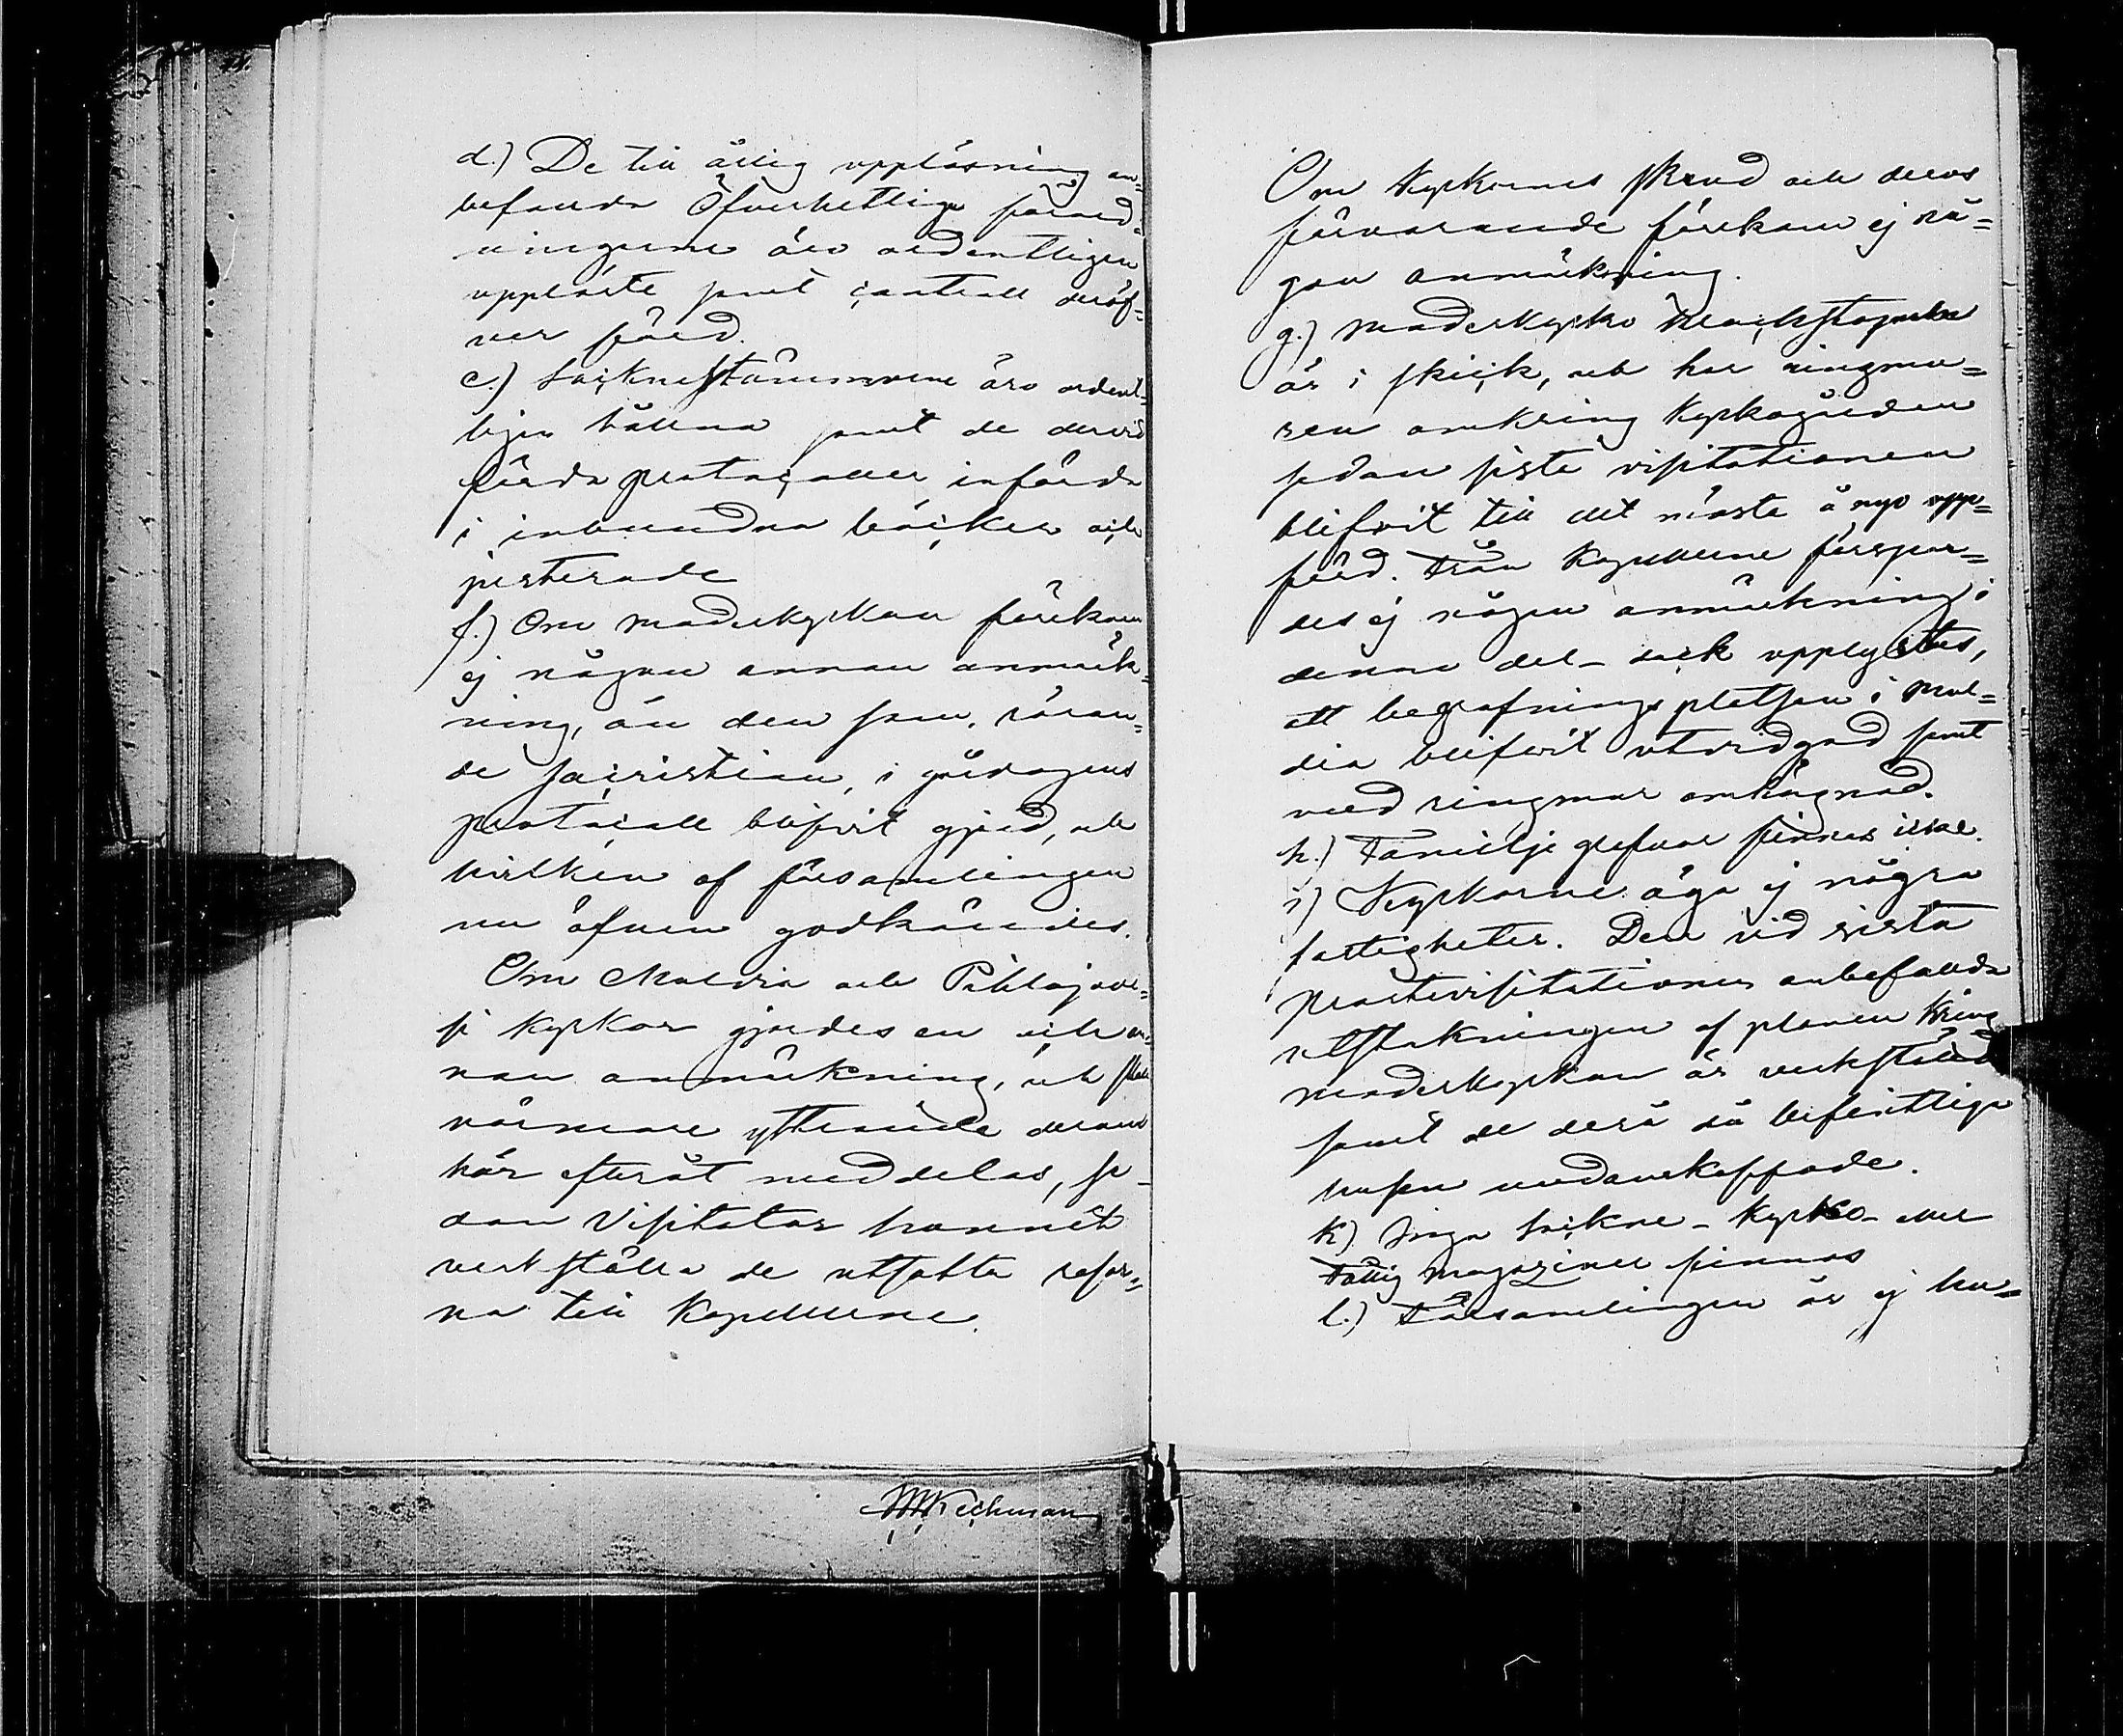 d.) De till årlig uppläsning an=
befallda Öfverhetliga förord=
ningarne äro ordentligen
uppläste samt controll deröf=
ver förd.
e.) Socknestämmorne äro ordent=
ligen hållna samt de dervid
förda protocoller införda
i inbundna böcker och
justerade
f.) Om moderkyrkan förekom
ej någon annan anmärk=
ning, än den som, röran=
de sacristian, i gårdagens
protocoll blifvit gjord, och
hvilken af församlingen
nu äfven godkändes.
Om Muldia och Pihlajave=
si kyrkor gjordes en och an=
nan anmärkning, och skall
närmare yttrande derom
här efteråt meddelas, se=
dan Visitator hunnit
verkställa de utsatta resor=
na till Kapellerne.
MKechman
Om Kyrkornes skrud och deras
förvarande förekom ej nå=
gon anmärkning.
g.) Moderkyrko Klockstapeln
är i skick, och har ringmu=
ren omkring Kyrkogården
sedan sista visitationen
blifvit till det mästa å nyo upp=
förd. Från Kapellerne förspor=
des ej någon anmärkning i
denna del – dock upplystes,
att begrafningsplatsen i Mul=
dia blifvit utvidgad samt
med ringmur omhägnad.
h.) Familje grafvar finnas icke.
i) Kyrkorne äga ej några
fastigheter. Den vid sista
Prostevisitationen anbefallda
utstakningen af planen kring
moderkyrkan är verkställd
samt de derå då befintliga
husen undanskaffade.
k) Inga Sockne- Kyrko- eller
Fattig magaziner finnas
l.) Församlingen är ej hu=